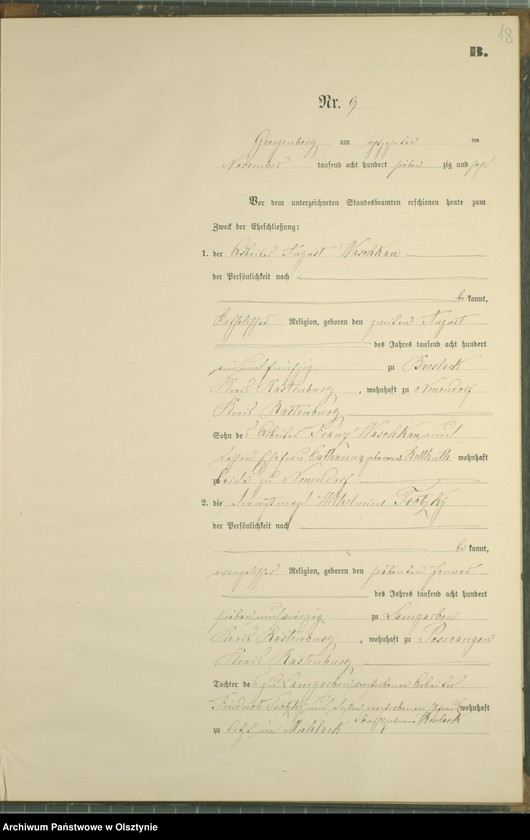 18
B.
Nr. 9
Georgenburg am achtzehnten
November tausend acht hundert sieben zig und sechs
Vor dem unterzeichneten Standesbeamten erschienen heute zum
Zweck der Eheschließung:
1. der Arbeiter August Waschkau
der Persönlichkeit nach
be kannt,
katholischer Religion, geboren den zweiten August
des Jahres tausend acht hundert
einundfünfzig zu Baeslack
Kreis Rastenburg, wohnhaft zu Neuendorf
Kreis Rastenburg
Sohn des Arbeiter Franz Waschkau und
dessen Ehefrau Catharina geborene wohnhaft
zu Beide zu Neuendorf
2. die Dienstmagd Wilhelmine Trotzky
der Persönlichkeit nach
be kannt,
evangelischer Religion, geboren den siebenten Januar
des Jahres tausend acht hundert
siebenundvierzig zu Lamgarben
Kreis Rastenburg, wohnhaft zu Posewangen
Kreis Rastenburg
Tochter des zu Lamgarben verstorbenen Arbeiter
Friedrich Trotzky und dessen verstorbenen Ehefrau wohnhaft
geborene
zu letzt in
Archiwum Państwowe w Olsztynie